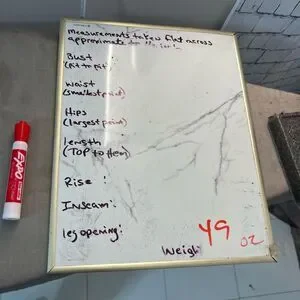 Measurements taken flat across
approximate
Bust :
(Pit to Pit)
waist
(smallest point)
Hips :
(largest point)
length
(TOP to Hem)
Rise :
Inseam :
leg opening:
Weigh
49 oz
EXPO